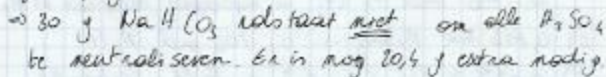 → 30 g NaHCO₃ volstaat niet om alle H₂SO₄
te neutraliseren. Er is nog 20,4 g extra nodig.